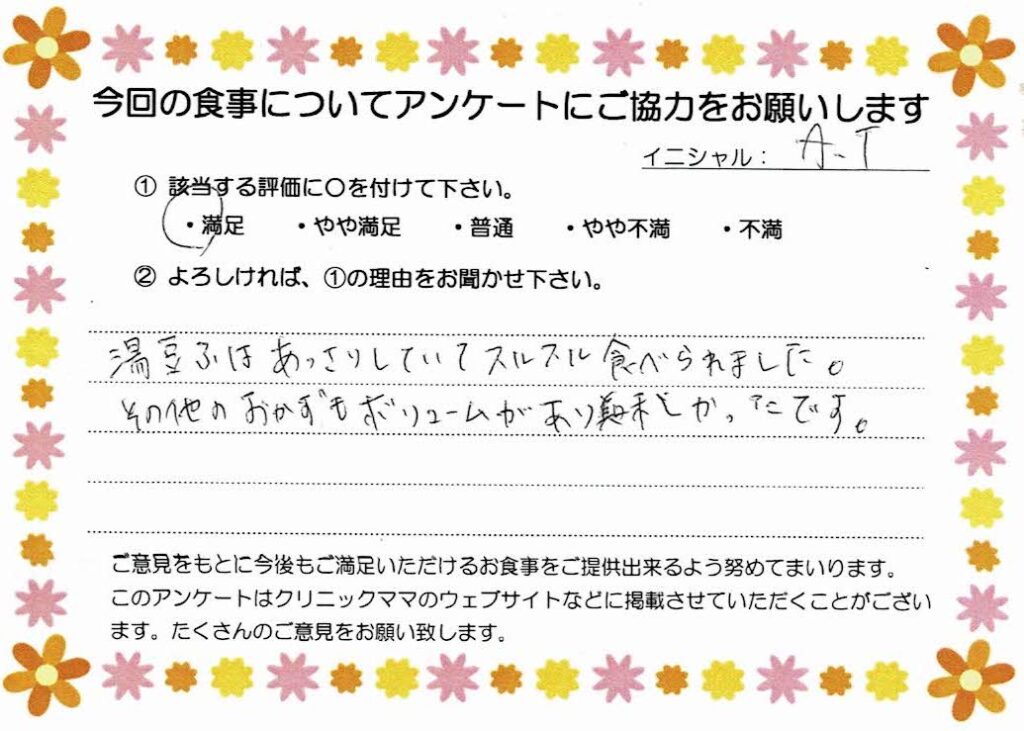 今回の食事についてアンケートにご協力をお願いします
イニシャル： A.T
① 該当する評価に○を付けて下さい。
・満足 ・やや満足 ・普通 ・やや不満 ・不満
② よろしければ、①の理由をお聞かせ下さい。
湯豆ふはあっさりしていてスルスル食べられました。
その他のおかずもボリュームがあり美味しかったです。
ご意見をもとに今後もご満足いただけるお食事をご提供出来るよう努めてまいります。
このアンケートはクリニックママのウェブサイトなどに掲載させていただくことがござい
ます。たくさんのご意見をお願い致します。